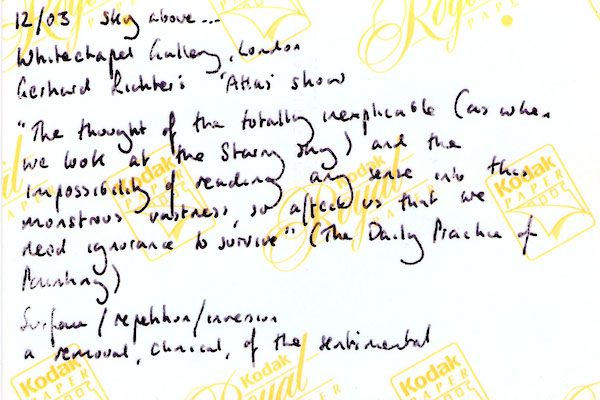 12/03 Sky above...
Whitechapel Gallery, London
Gerhard Richter's 'Atlas' show
"The thought of the totally inexplicable (as when
we look at the starry sky) and the
impossibility of reading any sense into this
monstrous vastness, so affects us that we
need ignorance to survive" (The Daily Practice of
Painting)
Surface / repetition / inversion
a removal, clinical, of the sentimental
Kodak
Royal
PAPER